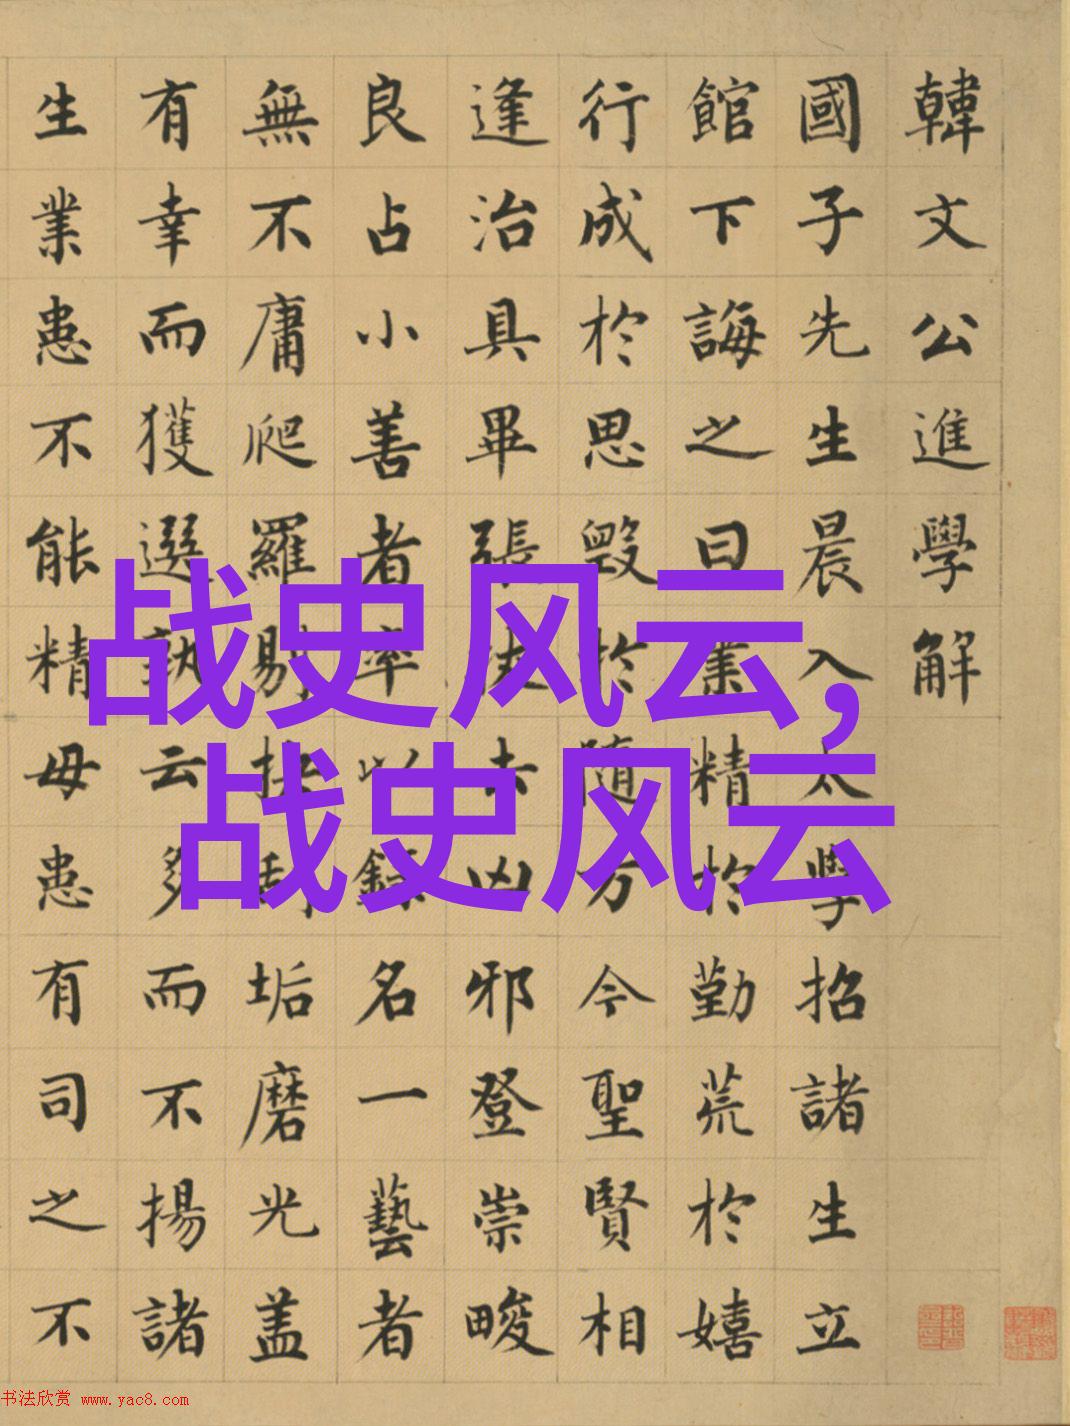 韓文公進學解
國子先生晨入太學招諸生立
館下誨之曰業精於勤荒於嬉
行成於思毀於随方今聖賢相
逢治具畢張拔去凶邪登崇畯
良占小善者率以録名一藝者
無不庸爬羅剔抉刮垢磨光盖
有幸而獲選孰云多而不揚諸
生業患不能精毋患有司之不
战史风云,
战史风云
书法欣赏 www.yac8.com